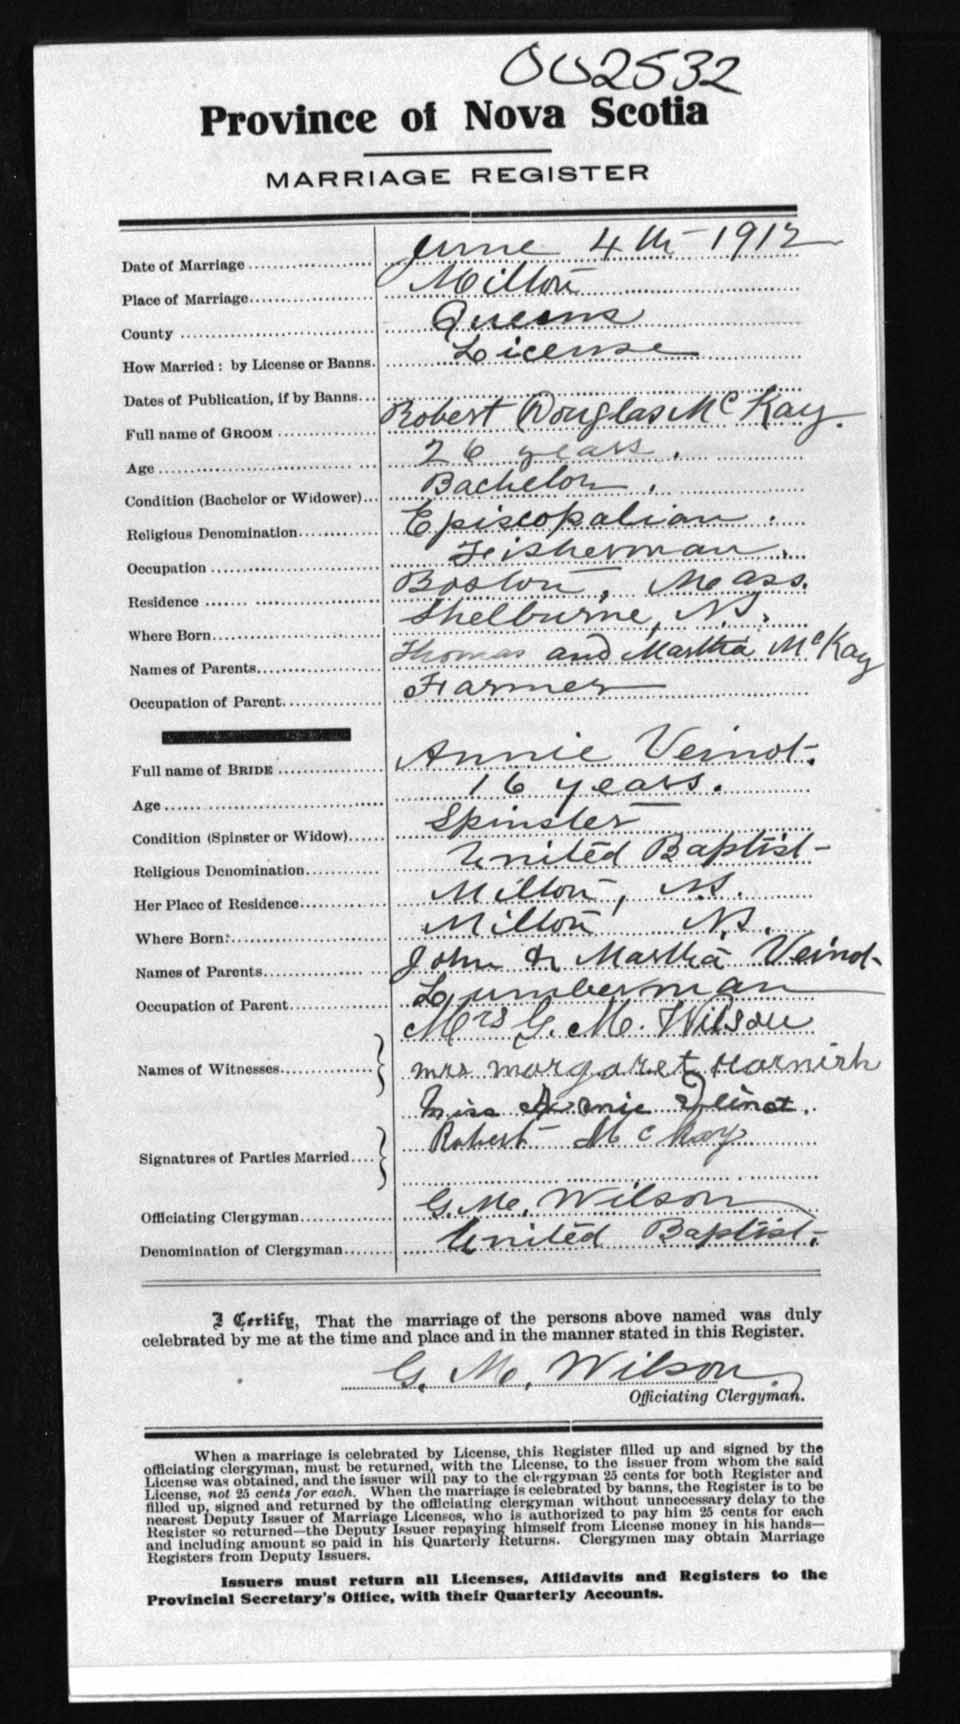 002532
Province of Nova Scotia
MARRIAGE REGISTER
Date of Marriage June 4th 1912
Place of Marriage Milton
County Queens
How Married: by License or Banns. License
Dates of Publication, if by Banns
Full name of GROOM Robert Douglas McKay.
Age 26 years.
Condition (Bachelor or Widower) Bachelor.
Religious Denomination Episcopalian.
Occupation Fisherman.
Residence Boston, Mass.
Where Born Shelburne, N.S.
Names of Parents Thomas and Martha McKay
Occupation of Parent Farmer
Full name of BRIDE Annie Veinot.
Age 16 years.
Condition (Spinster or Widow) Spinster
Religious Denomination United Baptist
Her Place of Residence Milton, N.S.
Where Born: Milton N.S.
Names of Parents John & Martha Veinot
Occupation of Parent Lumberman
Mrs G. M. Wilson
Names of Witnesses Mrs Margaret Harnish
Miss Annie Veinot.
Signatures of Parties Married Robert McKay
Officiating Clergyman G. M. Wilson
Denomination of Clergyman United Baptist.
I Certify, That the marriage of the persons above named was duly
celebrated by me at the time and place and in the manner stated in this Register.
G. M. Wilson
Officiating Clergyman.
When a marriage is celebrated by License, this Register filled up and signed by the
officiating clergyman, must be returned, with the License, to the issuer from whom the said
License was obtained, and the issuer will pay to the clergyman 25 cents for both Register and
License, not 25 cents for each. When the marriage is celebrated by banns, the Register is to be
filled up, signed and returned by the officiating clergyman without unnecessary delay to the
nearest Deputy Issuer of Marriage Licenses, who is authorized to pay him 25 cents for each
Register so returned—the Deputy Issuer repaying himself from License money in his hands—
and including amount so paid in his Quarterly Returns. Clergymen may obtain Marriage
Registers from Deputy Issuers.
Issuers must return all Licenses, Affidavits and Registers to the
Provincial Secretary's Office, with their Quarterly Accounts.